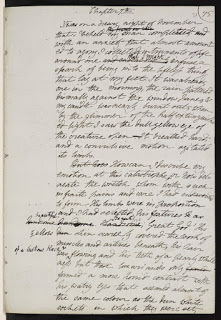 Chapter 7th
75
It was on a dreary night of November
that I beheld my man completed and
with an anxiety that almost amounted
to agony, collected instruments of life
around me that I might infuse a
spark of being into the lifeless thing
that lay at my feet. It was already
one in the morning, the rain pattered
dismally against the window panes, &
my candle was nearly burnt out, when
by the glimmer of the half extinguish-
ed light I saw the dull yellow eye of
the creature open. It breathed hard,
and a convulsive motion agitated
its limbs.
But how can I describe my
emotion at this catastrophe; or how deli-
neate the wretch whom with such
infinite pains and care I had endeavoured
to form. His limbs were in proportion
and I had selected his features as
beautiful
handsome. Handsome; Great God! His
yellow skin covered the work of
muscles and arteries beneath; his hair
of a lustrous black &
was flowing and his teeth of a pearly white
ness but these luxuriances only
formed a more horrid contrast with
his watry eyes that seemed almost of
the same colour as the dun white
sockets in which they were set